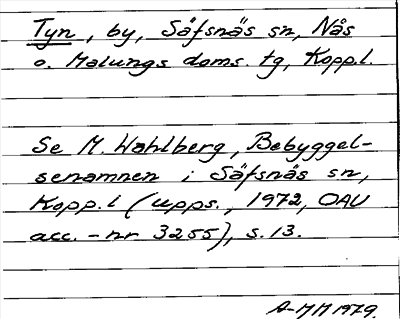 Tyn, by, Säfsnäs sn, Nås
o. Malungs doms. tg, Kopp.l.
Se M. Wahlberg, Bebyggel-
senamnen i Säfsnäs sn,
Kopp.l (upps., 1972, OAU
acc. - nr 3255), s. 13.
A-MM 1979.